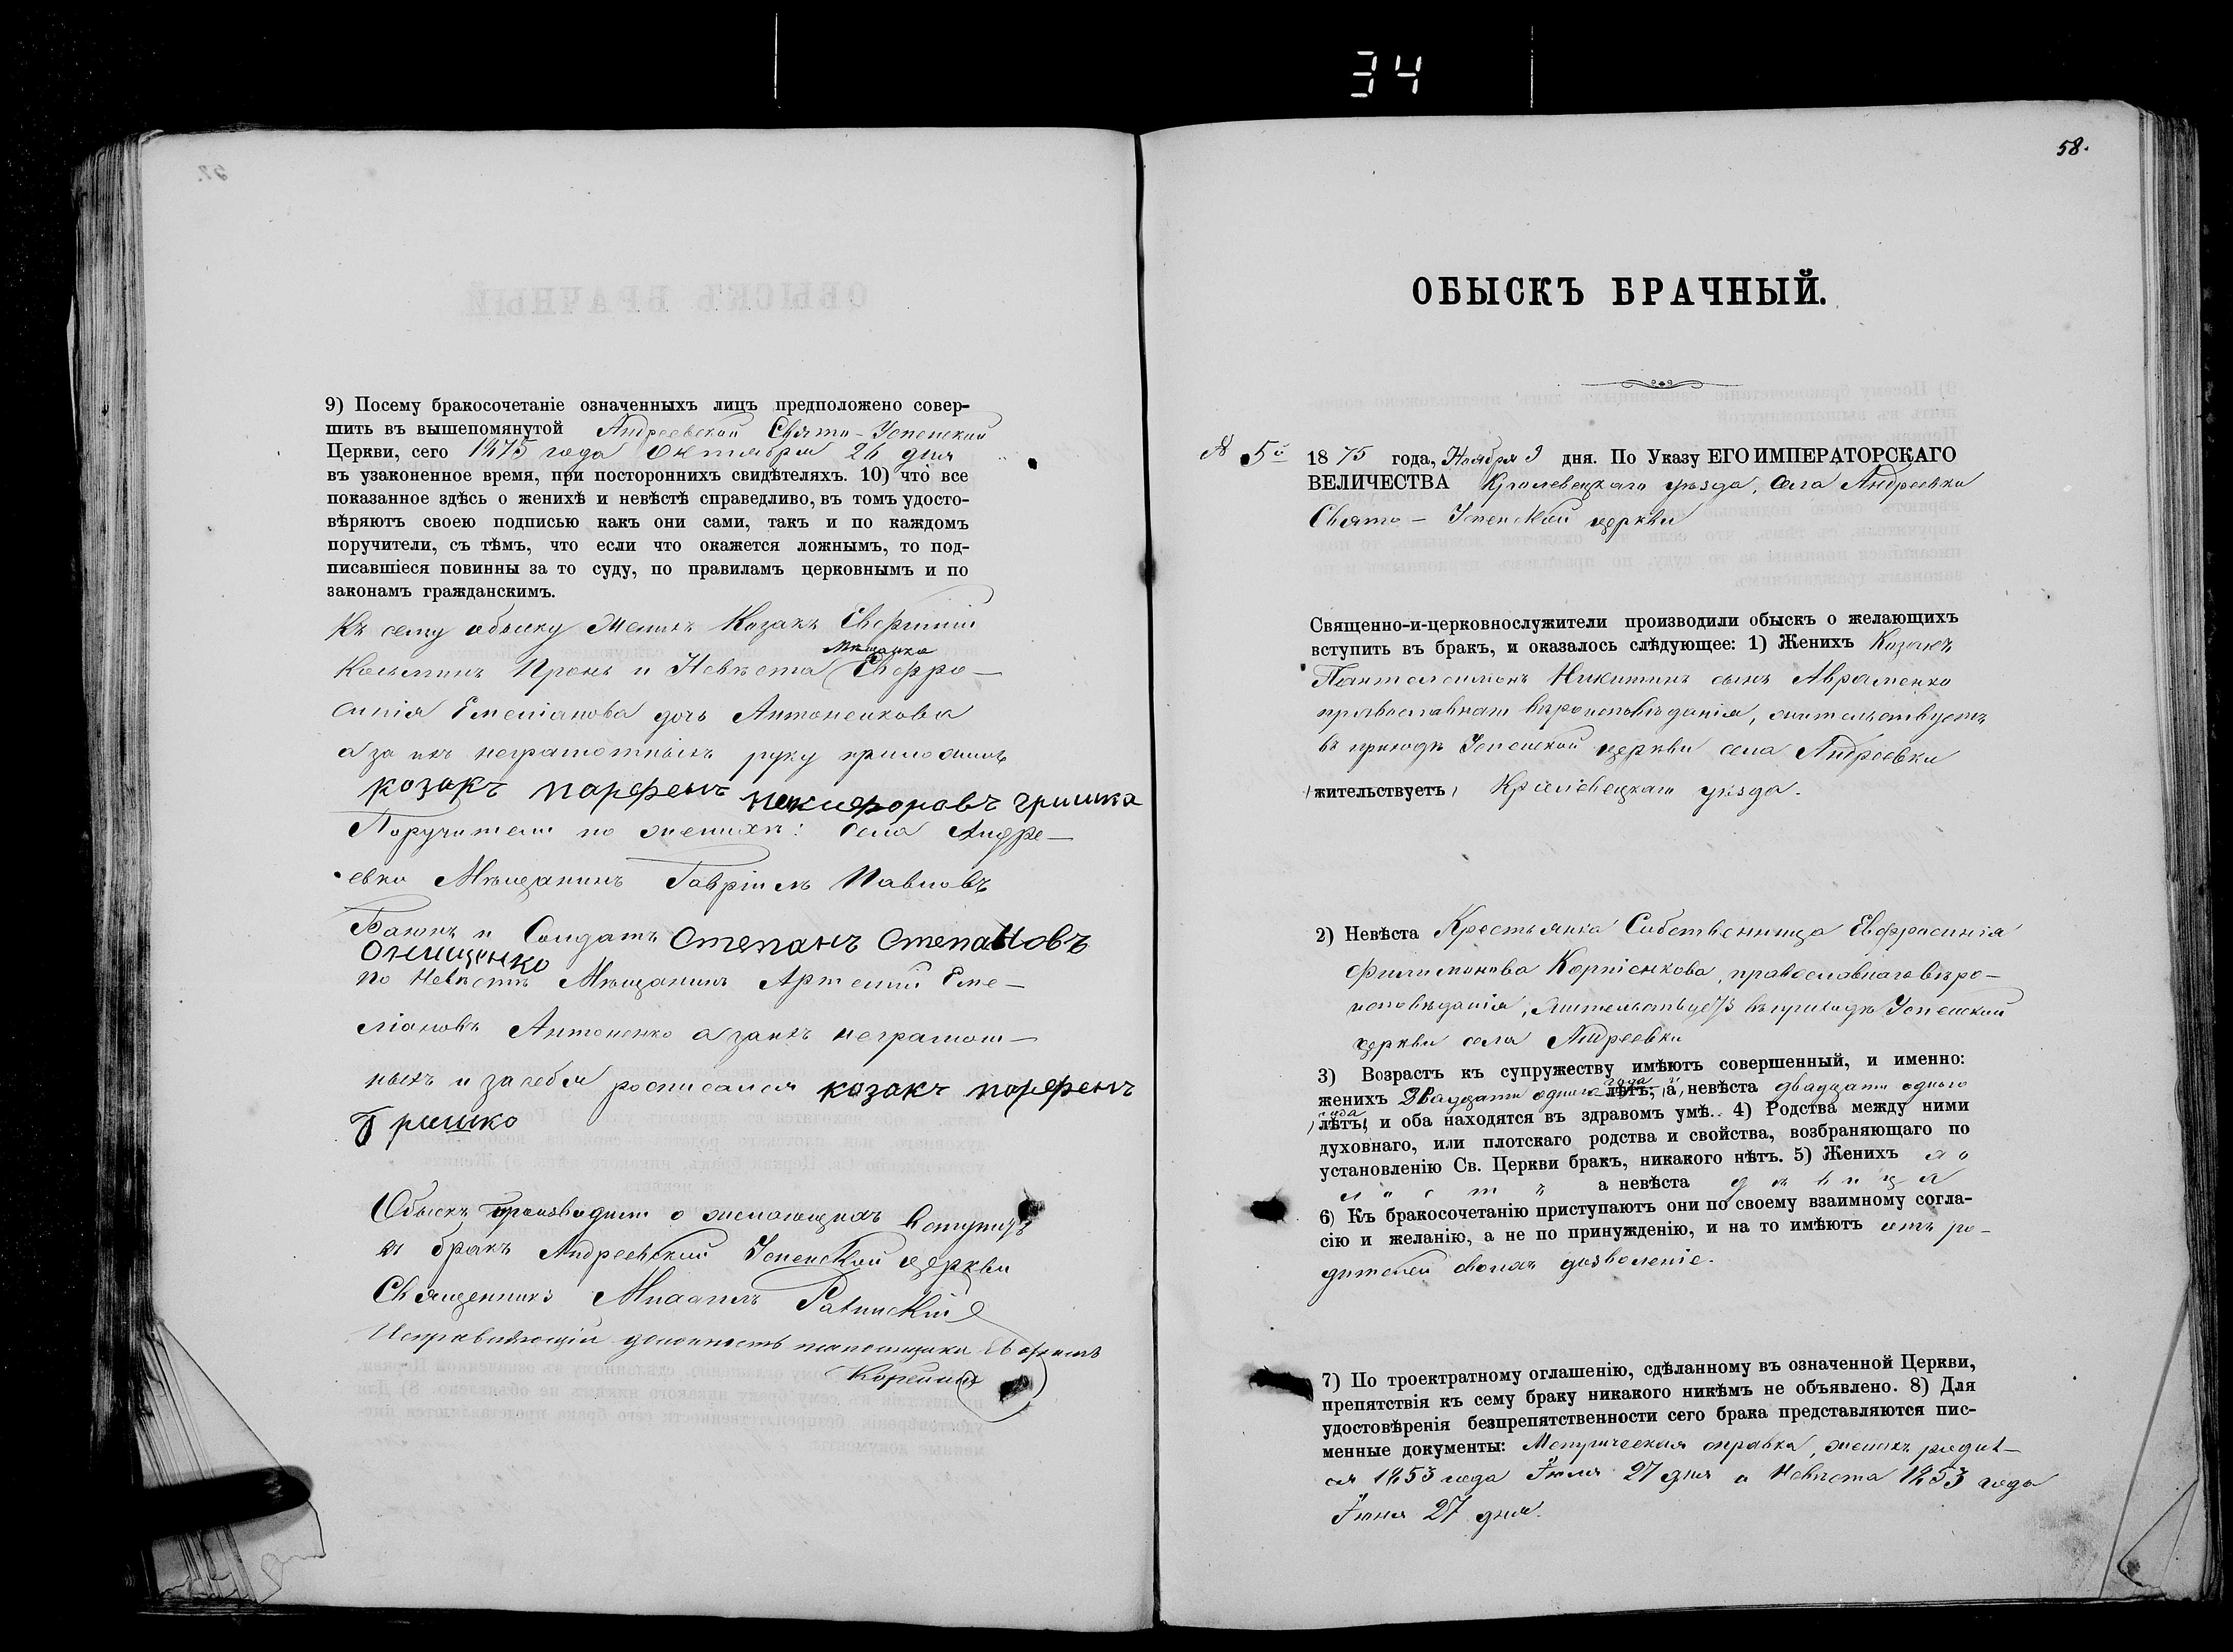 34
9) Посему бракосочетаніе означенныхъ лицъ предположено совер-
шить въ вышепомянутой Андреевской Свято-Успенской
Церкви, сего 1875 года Октября 26 дня
въ узаконенное время, при постороннихъ свидѣтеляхъ. 10) что все
показанное здѣсь о женихѣ и невѣстѣ справедливо, въ томъ удосто-
вѣряютъ своею подписью какъ они сами, такъ и по каждомъ
поручители, съ тѣмъ, что если что окажется ложнымъ, то под-
писавшіеся повинны за то суду, по правиламъ церковнымъ и по
законамъ гражданскимъ.
Къ сему обыску Женихъ Козакъ Евфимій
Мѣщанка
Косьминъ Пронь и Невѣста Евфро-
синія Емеліанова дочь Антоненкова
а за ихъ неграмотныхъ руку приложилъ
козакъ парфенъ гришка
Поручители по женихѣ: села Андре-
евки Мѣщанинъ Гавріилъ Павловъ
и Солдатъ Степанъ Степановъ
Онищенко
по Невѣстѣ Мѣщанинъ Артемій Еме-
ліановъ Антоненко а за ихъ неграмот-
ныхъ и за себя росписался козакъ парфенъ
Гришко
Обыскъ производили о желающихъ вступить
въ бракъ Андреевской Успенской церкви
Священникъ Михаилъ
Исправляющій должность псаломщика
58.
ОБЫСКЪ БРАЧНЫЙ.
№ 5й 1875 года, Ноября 9 дня. По Указу ЕГО ИМПЕРАТОРСКАГО
ВЕЛИЧЕСТВА Кролевецкаго уѣзда, села Андреевки
Свято-Успенской церкви
Священно-и-церковнослужители производили обыскъ о желающихъ
вступить въ бракъ, и оказалось слѣдующее: 1) Женихъ Козакъ
Пантелеимонъ Никитинъ сынъ Авраменко
православнаго вѣроисповѣданія, жительствуетъ
въ приходѣ Успенской церкви села Андреевки
жительствуетъ, Кролевецкаго уѣзда.
2) Невѣста Крестьянка Собственница Евфросинія
Филимонова Корніенкова, православнаго вѣро-
исповѣданія, жительствуетъ въ приходѣ Успенской
церкви села Андреевки
3) Возрастъ къ супружеству имѣютъ совершенный, и именно:
года
женихъ Двадцати одного лѣтъ; а невѣста двадцати одного
года
лѣтъ, и оба находятся въ здравомъ умѣ. 4) Родства между ними
духовнаго, или плотскаго родства и свойства, возбраняющаго по
установленію Св. Церкви бракъ, никакого нѣтъ. 5) Женихъ хо
лостъ а невѣста дѣвица
6) Къ бракосочетанію приступаютъ они по своему взаимному согла-
сію и желанію, а не по принужденію, и на то имѣютъ отъ ро-
дителей своихъ дозволеніе.
7) По троектратному оглашенію, сдѣланному въ означенной Церкви,
препятствія къ сему браку никакого никѣмъ не объявлено. 8) Для
удостовѣренія безпрепятственности сего брака представляются пис-
менные документы: Метрическая справка, женихъ родил-
ся 1853 года Іюля 27 дня а Невѣста 1853 года
Іюня 27 дня.